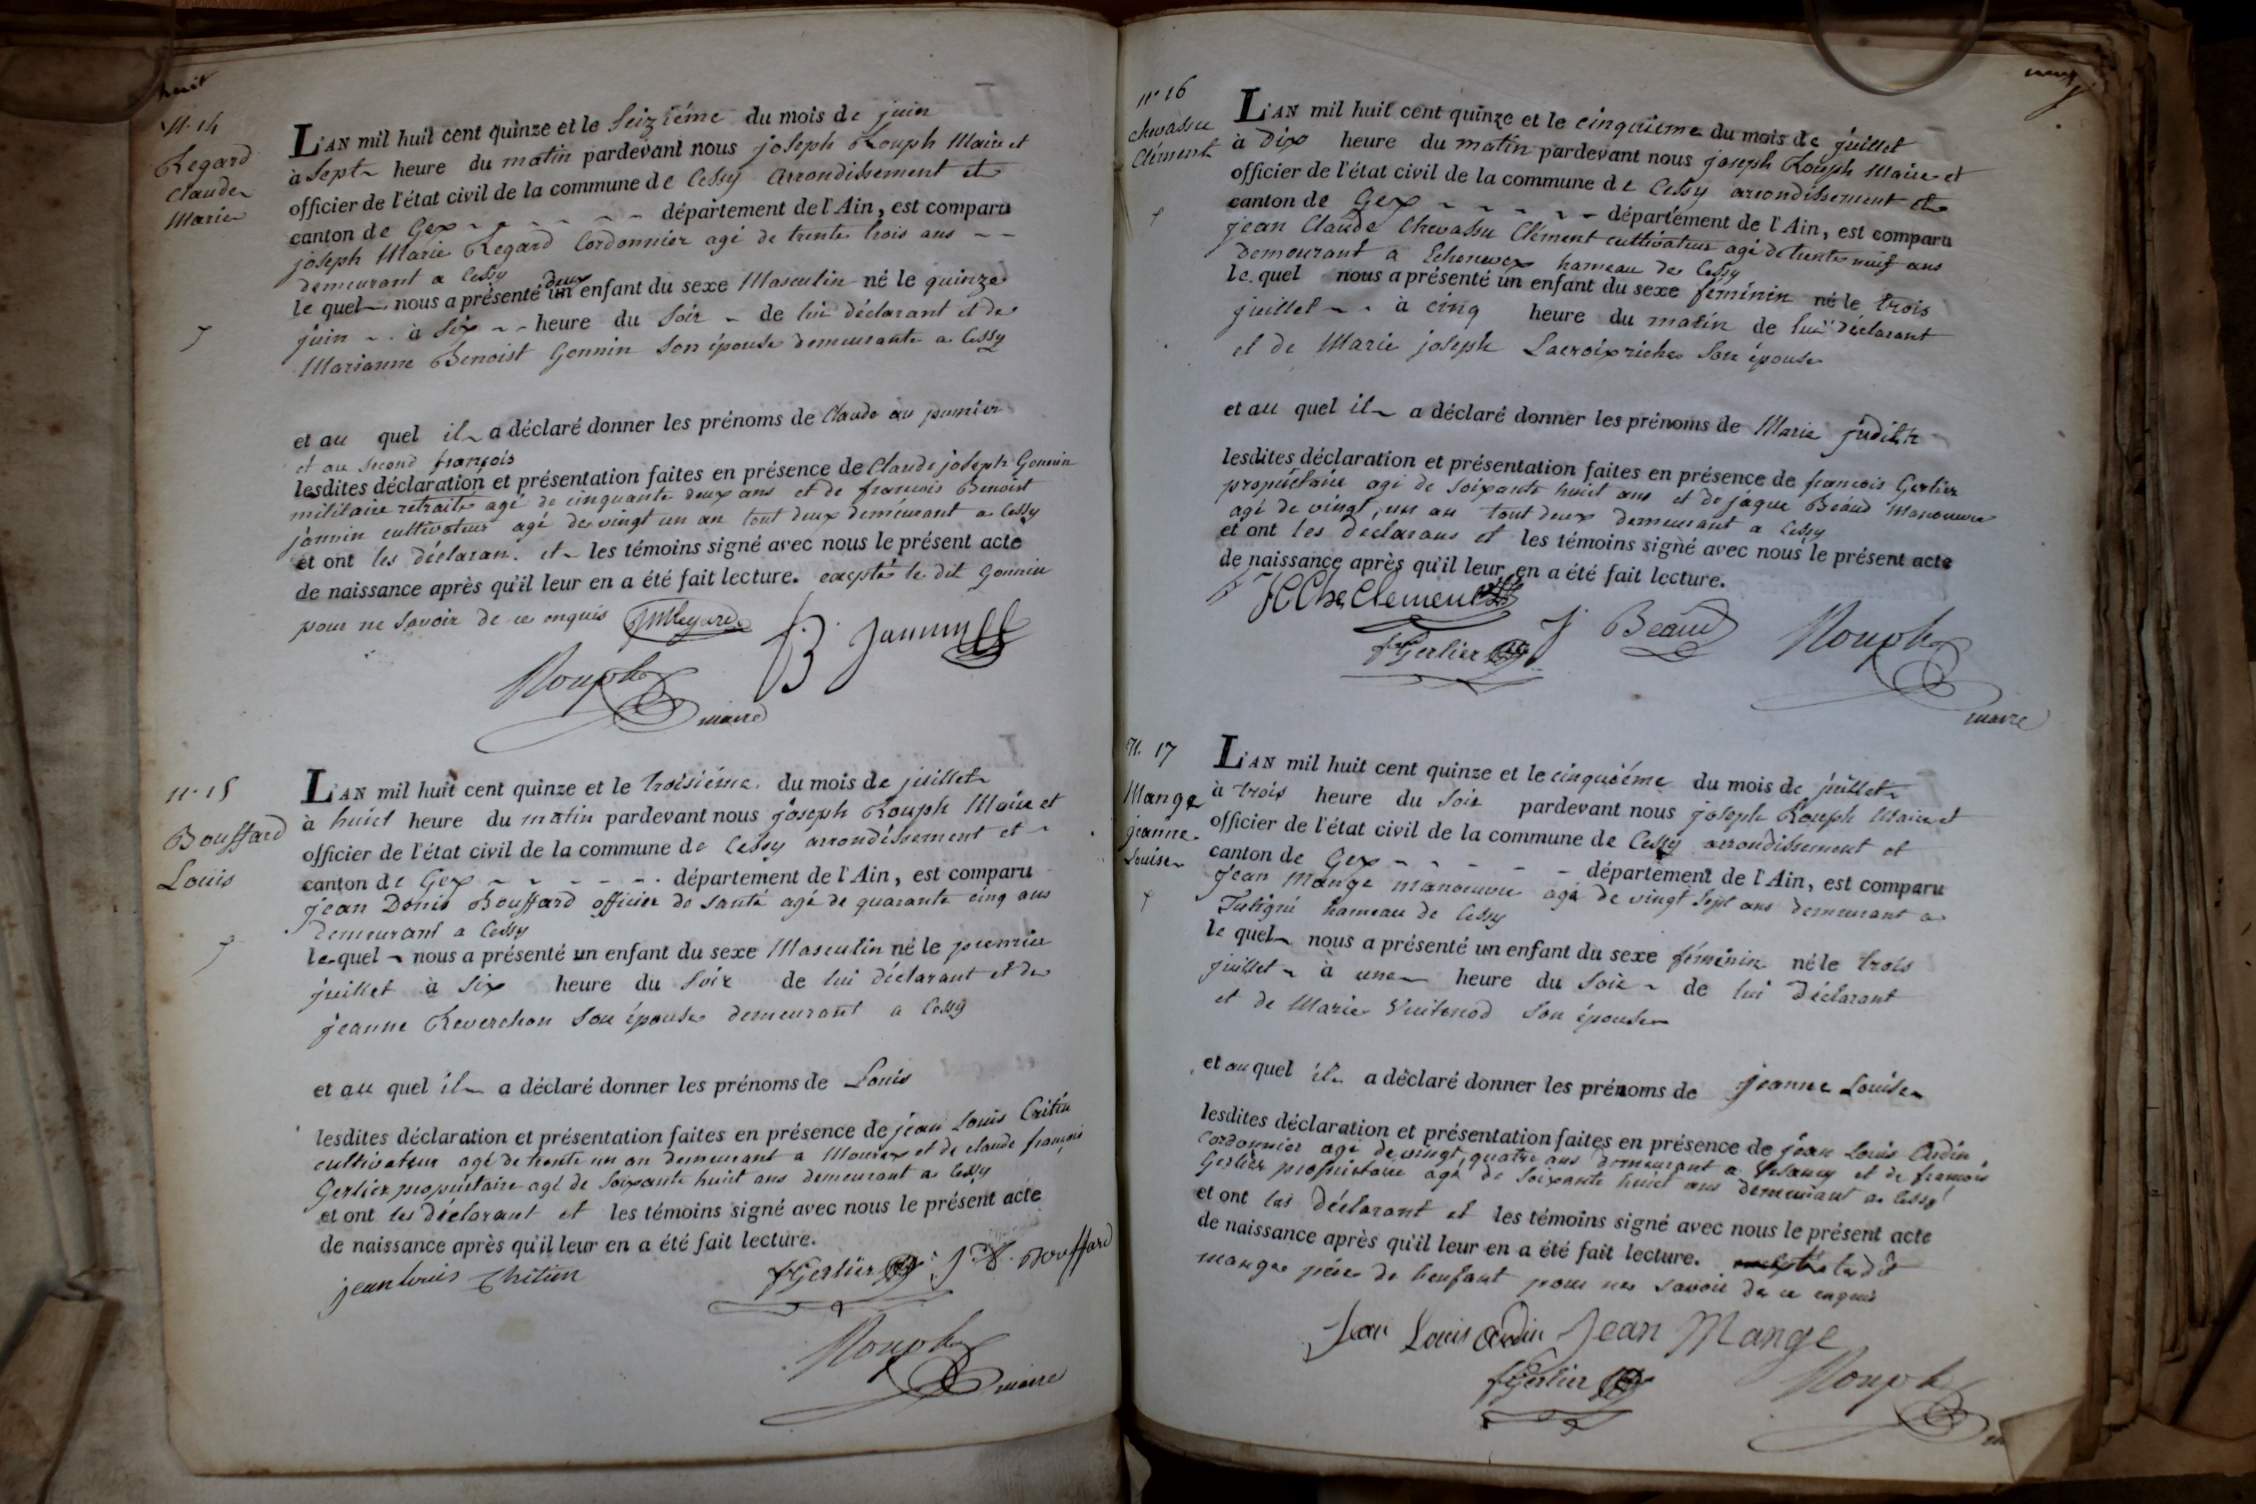 huit
N. 14
Regard
Claude
Marie
L'AN mil huit cent quinze et le Seiziéme du mois de juin
à Sept heure du matin pardevant nous joseph Rouph Maire et
officier de l'état civil de la commune de Cessy arrondissement et
canton de Gex - - - - - - département de l'Ain, est comparu
joseph Marie Regard Cordonnier agé de trente trois ans - -
demeurant a Cessy
le quel nous a présenté un deux enfant du sexe Masculin né le quinze
juin - - à Six - - heure du Soir - de lui déclarant et de
Marianne Benoist Gonnin Son épouse demeurante a Cessy
et au quel il a déclaré donner les prénoms de Claude au premier
et au second françois
lesdites déclaration et présentation faites en présence de Claude joseph Gonnin
militaire retraité agé de cinquante deux ans et de francois Benoist
jonnin cultivateur agé de vingt un an tout deux demeurant a Cessy
et ont les déclaran. et les témoins signé avec nous le présent acte
de naissance après qu'il leur en a été fait lecture. excepté le dit Gonnin
pour ne Savoir de ce enquis JMRegard
B. Jannin
Rouph
maire
n. 15
Bouffard
Louis
L'AN mil huit cent quinze et le troisiéme. du mois de juillet
à huict heure du matin pardevant nous joseph Rouph Maire et
officier de l'état civil de la commune de Cessy arrondissement et -
canton de Gex - - - - - - département de l'Ain, est comparu
jean Denis Bouffard officier de santé agé de quarante cinq ans
demeurant a Cessy
le quel - nous a présenté un enfant du sexe Masculin né le premier
juillet à Six heure du Soir de lui déclarant et de
jeanne Reverchon Son épouse demeurant a Cessy
et au quel il a déclaré donner les prénoms de Louis
lesdites déclaration et présentation faites en présence de jean Louis Critin
cultivateur agé de trente un an demeurant a Mourex et de claude françois
Gerlier propriétaire agé de Soixante huit ans demeurant a Cessy
et ont les déclarant et les témoins signé avec nous le présent acte
de naissance après qu'il leur en a été fait lecture.
jean louis Chitin fGerlier J. D. Bouffard
Rouph
maire
neuf
n. 16
chevassu
Clément
L'AN mil huit cent quinze et le cinquiéme du mois de juillet
à Dix heure du matin pardevant nous joseph Rouph Maire et
officier de l'état civil de la commune de Cessy arrondissement et
canton de Gex - - - - - département de l'Ain, est comparu
jean Claude Chevassu Clément cultivateur agé de trente neuf ans
demeurant a Echenevex hameau de Cessy
le quel nous a présenté un enfant du sexe féminin né le trois
juillet - - à cinq heure du matin de lui déclarant
et de Marie joseph Lacroixriche Son épouse
et au quel il a déclaré donner les prénoms de Marie judith
lesdites déclaration et présentation faites en présence de francois Gerlier
propriétaire agé de Soixante huict ans et de jaque Béaud Manouvre
agé de vingt, un an tout deux demeurant a Cessy
et ont les declarans et les témoins signé avec nous le présent acte
de naissance après qu'il leur en a été fait lecture.
JCChe Clement
fGerlier J Beaud Rouph
maire
N. 17
Mange
jeanne
Louise
L'AN mil huit cent quinze et le cinquiéme du mois de juillet
à trois heure du Soir pardevant nous joseph Rouph Maire et
officier de l'état civil de la commune de Cessy arrondissement et
canton de Gex - - - - - département de l'Ain, est comparu
jean Mange manouvre agé de vingt Sept ans demeurant a
Tutigni hameau de Cessy
le quel nous a présenté un enfant du sexe féminin né le trois
juillet - à une heure du Soir - de lui déclarant
et de Marie Vuitenod Son épouse
et au quel il a déclaré donner les prénoms de jeanne Louise
lesdites déclaration et présentation faites en présence de jean Louis Ordin
Cordonnier agé de vingt, quatre ans demeurant a Vesancy et de francois
Gerlier propriétaire agé de Soixante huict ans demeurant a Cessy
et ont les déclarant et les témoins signé avec nous le présent acte
de naissance après qu'il leur en a été fait lecture. excepté le dit
mange pére de lenfant pour ne savoir de ce enquis
Jean Louis Ordin Jean Mange
fGerlier Rouph